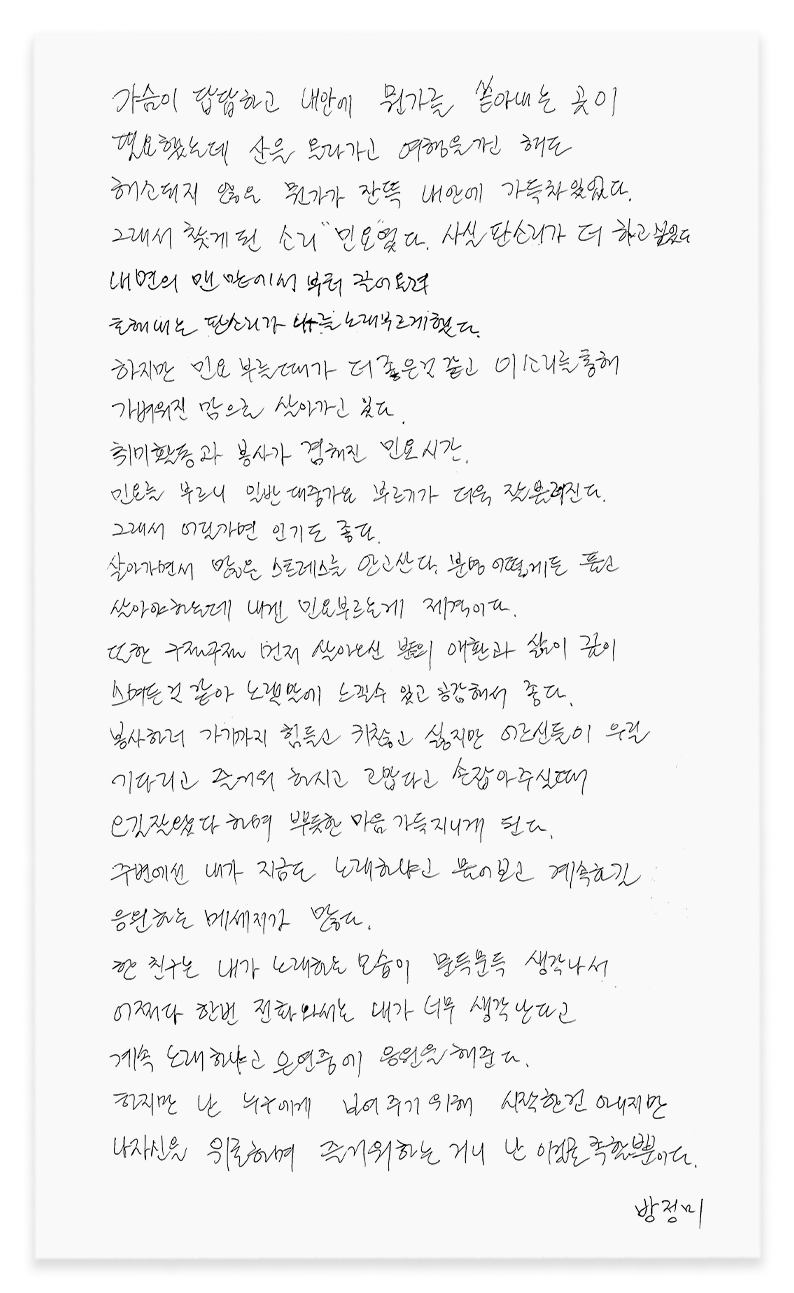 가슴이 답답하고 내안에 뭔가를 쏟아내는 곳이
필요했는데 산을 올라가고 여행을 가긴 해도
해소되지 않은 뭔가가 잔뜩 내안에 가득차 있었다.
그래서 찾게 된 소리 "민요"였다. 사실 판소리가 더 하고 싶었다
내면의 맨 밑에서 부터 끌어올려
토해내는 판소리가 나를 노래부르게 했다.
하지만 민요 부를때가 더 좋은것 같고 이 소리를 통해
가벼워진 맘으로 살아가고 있다.
취미활동과 봉사가 겸해진 민요시간.
민요를 부르니 일반 대중가요 부르기가 더욱 잘 불러진다.
그래서 어딜가면 인기도 좋다.
살아가면서 많은 스트레스를 안고산다. 분명 어떻게든 풀고
살아야하는데 내겐 민요부르는게 제격이다.
또한 구절구절 먼저 살아오신 분들의 애환과 삶이 깊이
스며든것 같아 노랫말에 느낄수 있고 공감해서 좋다.
봉사하러 가기까지 힘들고 귀찮고 싫지만 어르신들이 우릴
기다리고 즐거워 하시고 고맙다고 손잡아주실때
오길 잘했다 하며 뿌듯한 마음 가득지니게 된다.
주변에선 내가 지금도 노래하냐고 물어보고 계속하길
응원하는 메세지가 많다.
한 친구는 내가 노래하는 모습이 문득문득 생각나서
어쩌다 한번 전화와서는 내가 너무 생각난다고
계속 노래하냐고 은연중에 응원을 해준다.
하지만 난 누구에게 보여주기 위해 시작한건 아니지만
나자신을 위로하며 즐거워하는 거니 난 이걸로 족할뿐이다.
방정미